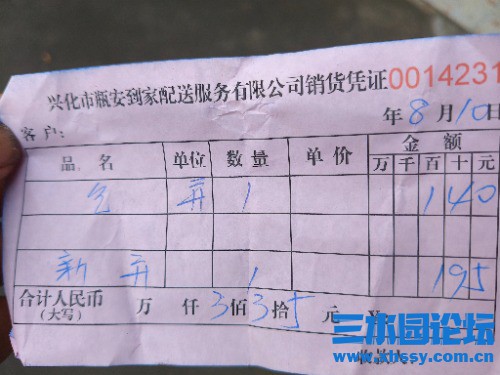 兴化市瓶安到家配送服务有限公司销货凭证 0014231
年 8 月 10 日
客户:
品名 单位 数量 单价 金额
万 千 百 十 元
气 并 1 140
新 并 1 195
合计人民币 万 仟 3 佰 3 拾 5 元 ¥
(大写)
收款人
三水园论坛
www.xhssy.com